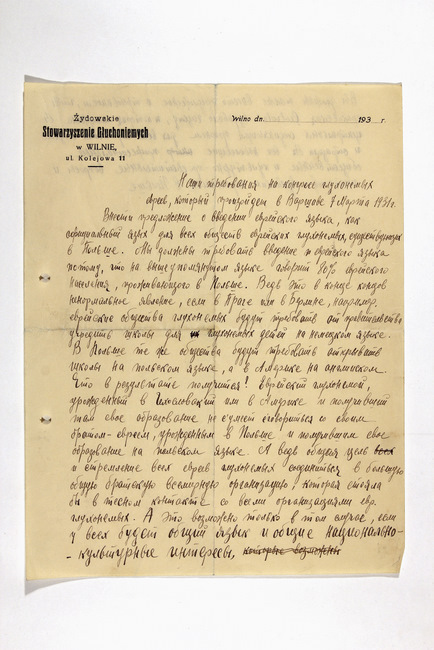 Żydowskie
Stowarzyszenie Głuchoniemych
w WILNIE,
ul. Kolejowa 11
Wilno dn. 193 r.
Наши требования на конгрессе глухонемых
евреев, который произойдет в Варшаве 7 марта 1931 г.
Внести предложение о введении еврейского языка, как
официальный язык для всех обществ еврейских глухонемых, существующих
в Польше. Мы должны требовать введение и еврейского языка
потому, что на вышеупомянутом языке говорит 80% еврейского
населения, проживающего в Польше. Ведь это в конце концов
ненормальное явление, если в Праге или в Берлине, например,
еврейские общества глухонемых будут требовать от правительства
учредить школы для глухонемых детей на немецком языке.
В Польше те же общества будут требовать открывать
школы на польском языке, а в Америке на английском.
Что в результате получится? Еврейский глухонемой,
урожденный в Чехословакии или в Америке и получивший
там свое образование не сумеет сговориться со своим
братом-евреем, урожденным в Польше и получившим свое
образование на польском языке. А ведь общая цель всех
и стремление всех евреев глухонемых соединиться в большую
общую братскую всемирную организацию, которая стояла
бы в тесном контакте со всеми организациями евр.
глухонемых. А это возможно только в том случае, если
у всех будет общий язык и общие национально-
-культурные интересы, которые возможны